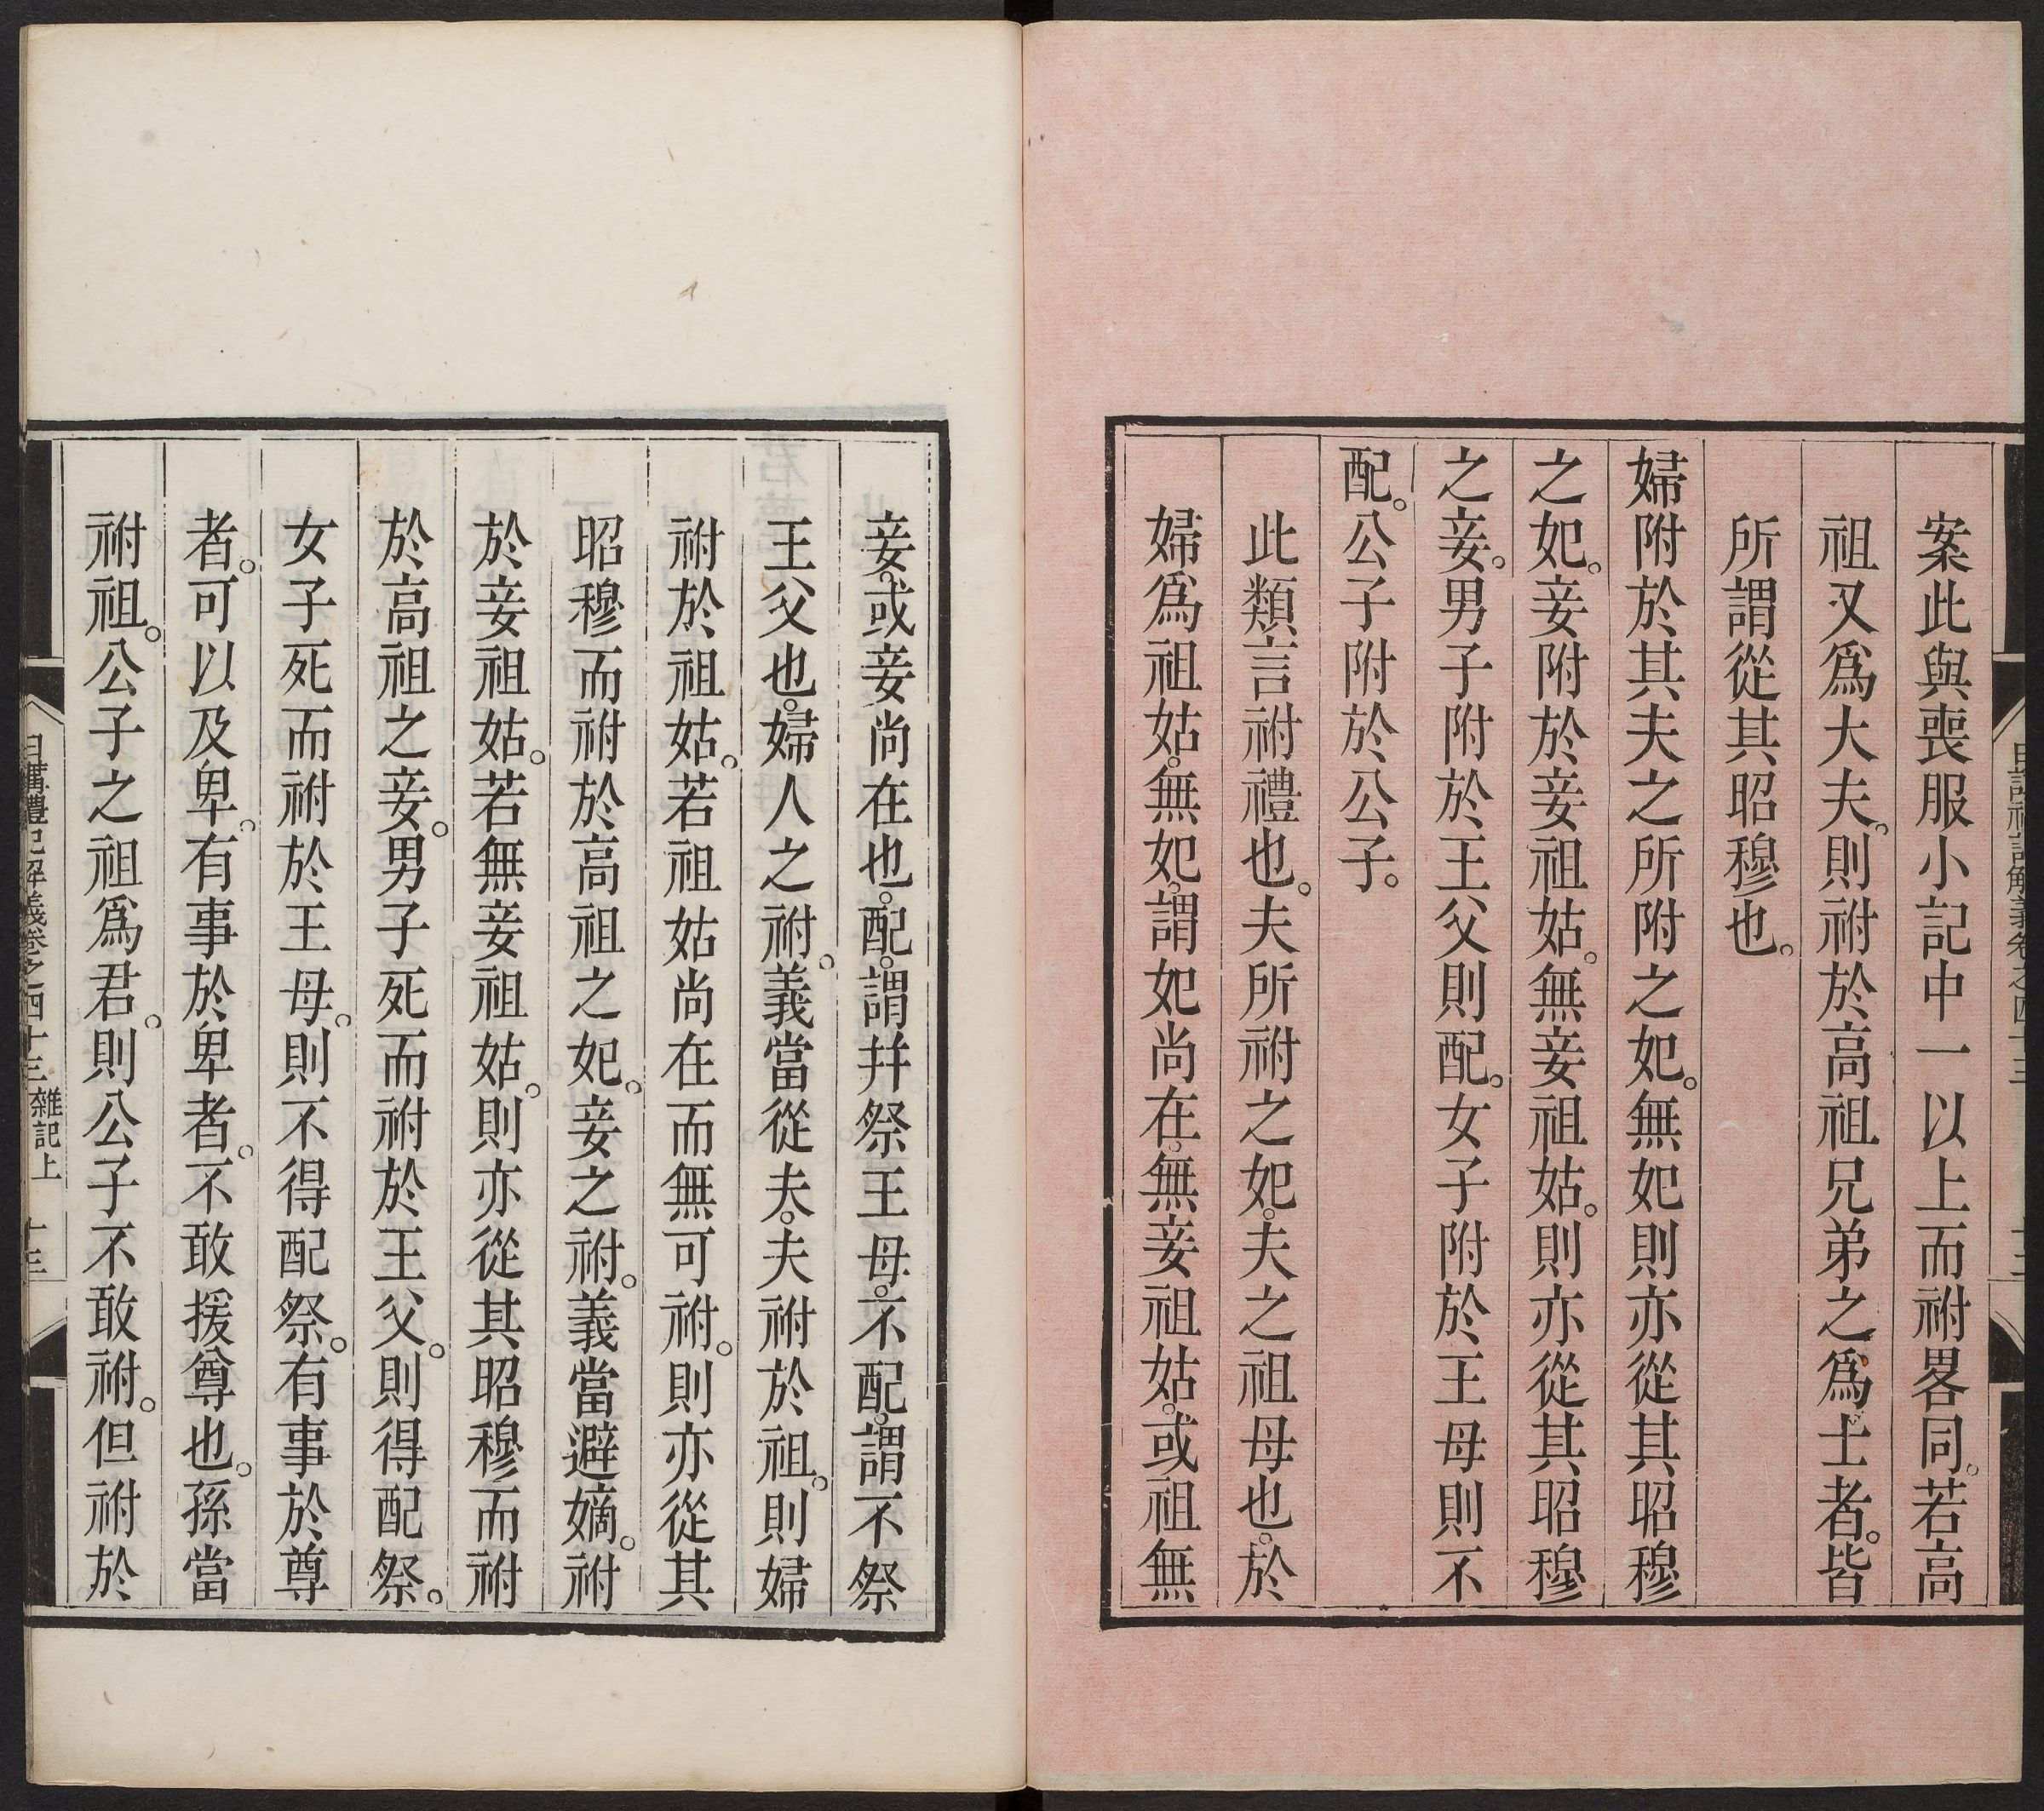 案此與喪服小記中一以上而祔畧同。若高
祖又爲大夫。則祔於高祖兄弟之爲士者。皆
所謂從其昭穆也。
婦附於其夫之所附之妃。無妃則亦從其昭穆
之妃。妾附於妾祖姑。無妾祖姑。則亦從其昭穆
之妾。男子附於王父則配。女子附於王母則不
配。公子附於公子。
此類言祔禮也。夫所祔之妃。夫之祖母也。於
婦爲祖姑。無妃。謂妃尚在。無妾祖姑。或祖無
妾。或妾尚在也。配。謂并祭王母。不配。謂不祭
王父也。婦人之祔。義當從夫。夫祔於祖。則婦
祔於祖姑。若祖姑尚在而無可祔。則亦從其
昭穆而祔於高祖之妃。妾之祔。義當避嫡。祔
於妾祖姑。若無妾祖姑。則亦從其昭穆而祔
於高祖之妾。男子死而祔於王父。則得配祭。
女子死而祔於王母。則不得配祭。有事於尊
者。可以及卑。有事於卑者。不敢援尊也。孫當
祔祖。公子之祖爲君。則公子不敢祔。但祔於
日講禮記解義卷之四十三 雜記上 十三